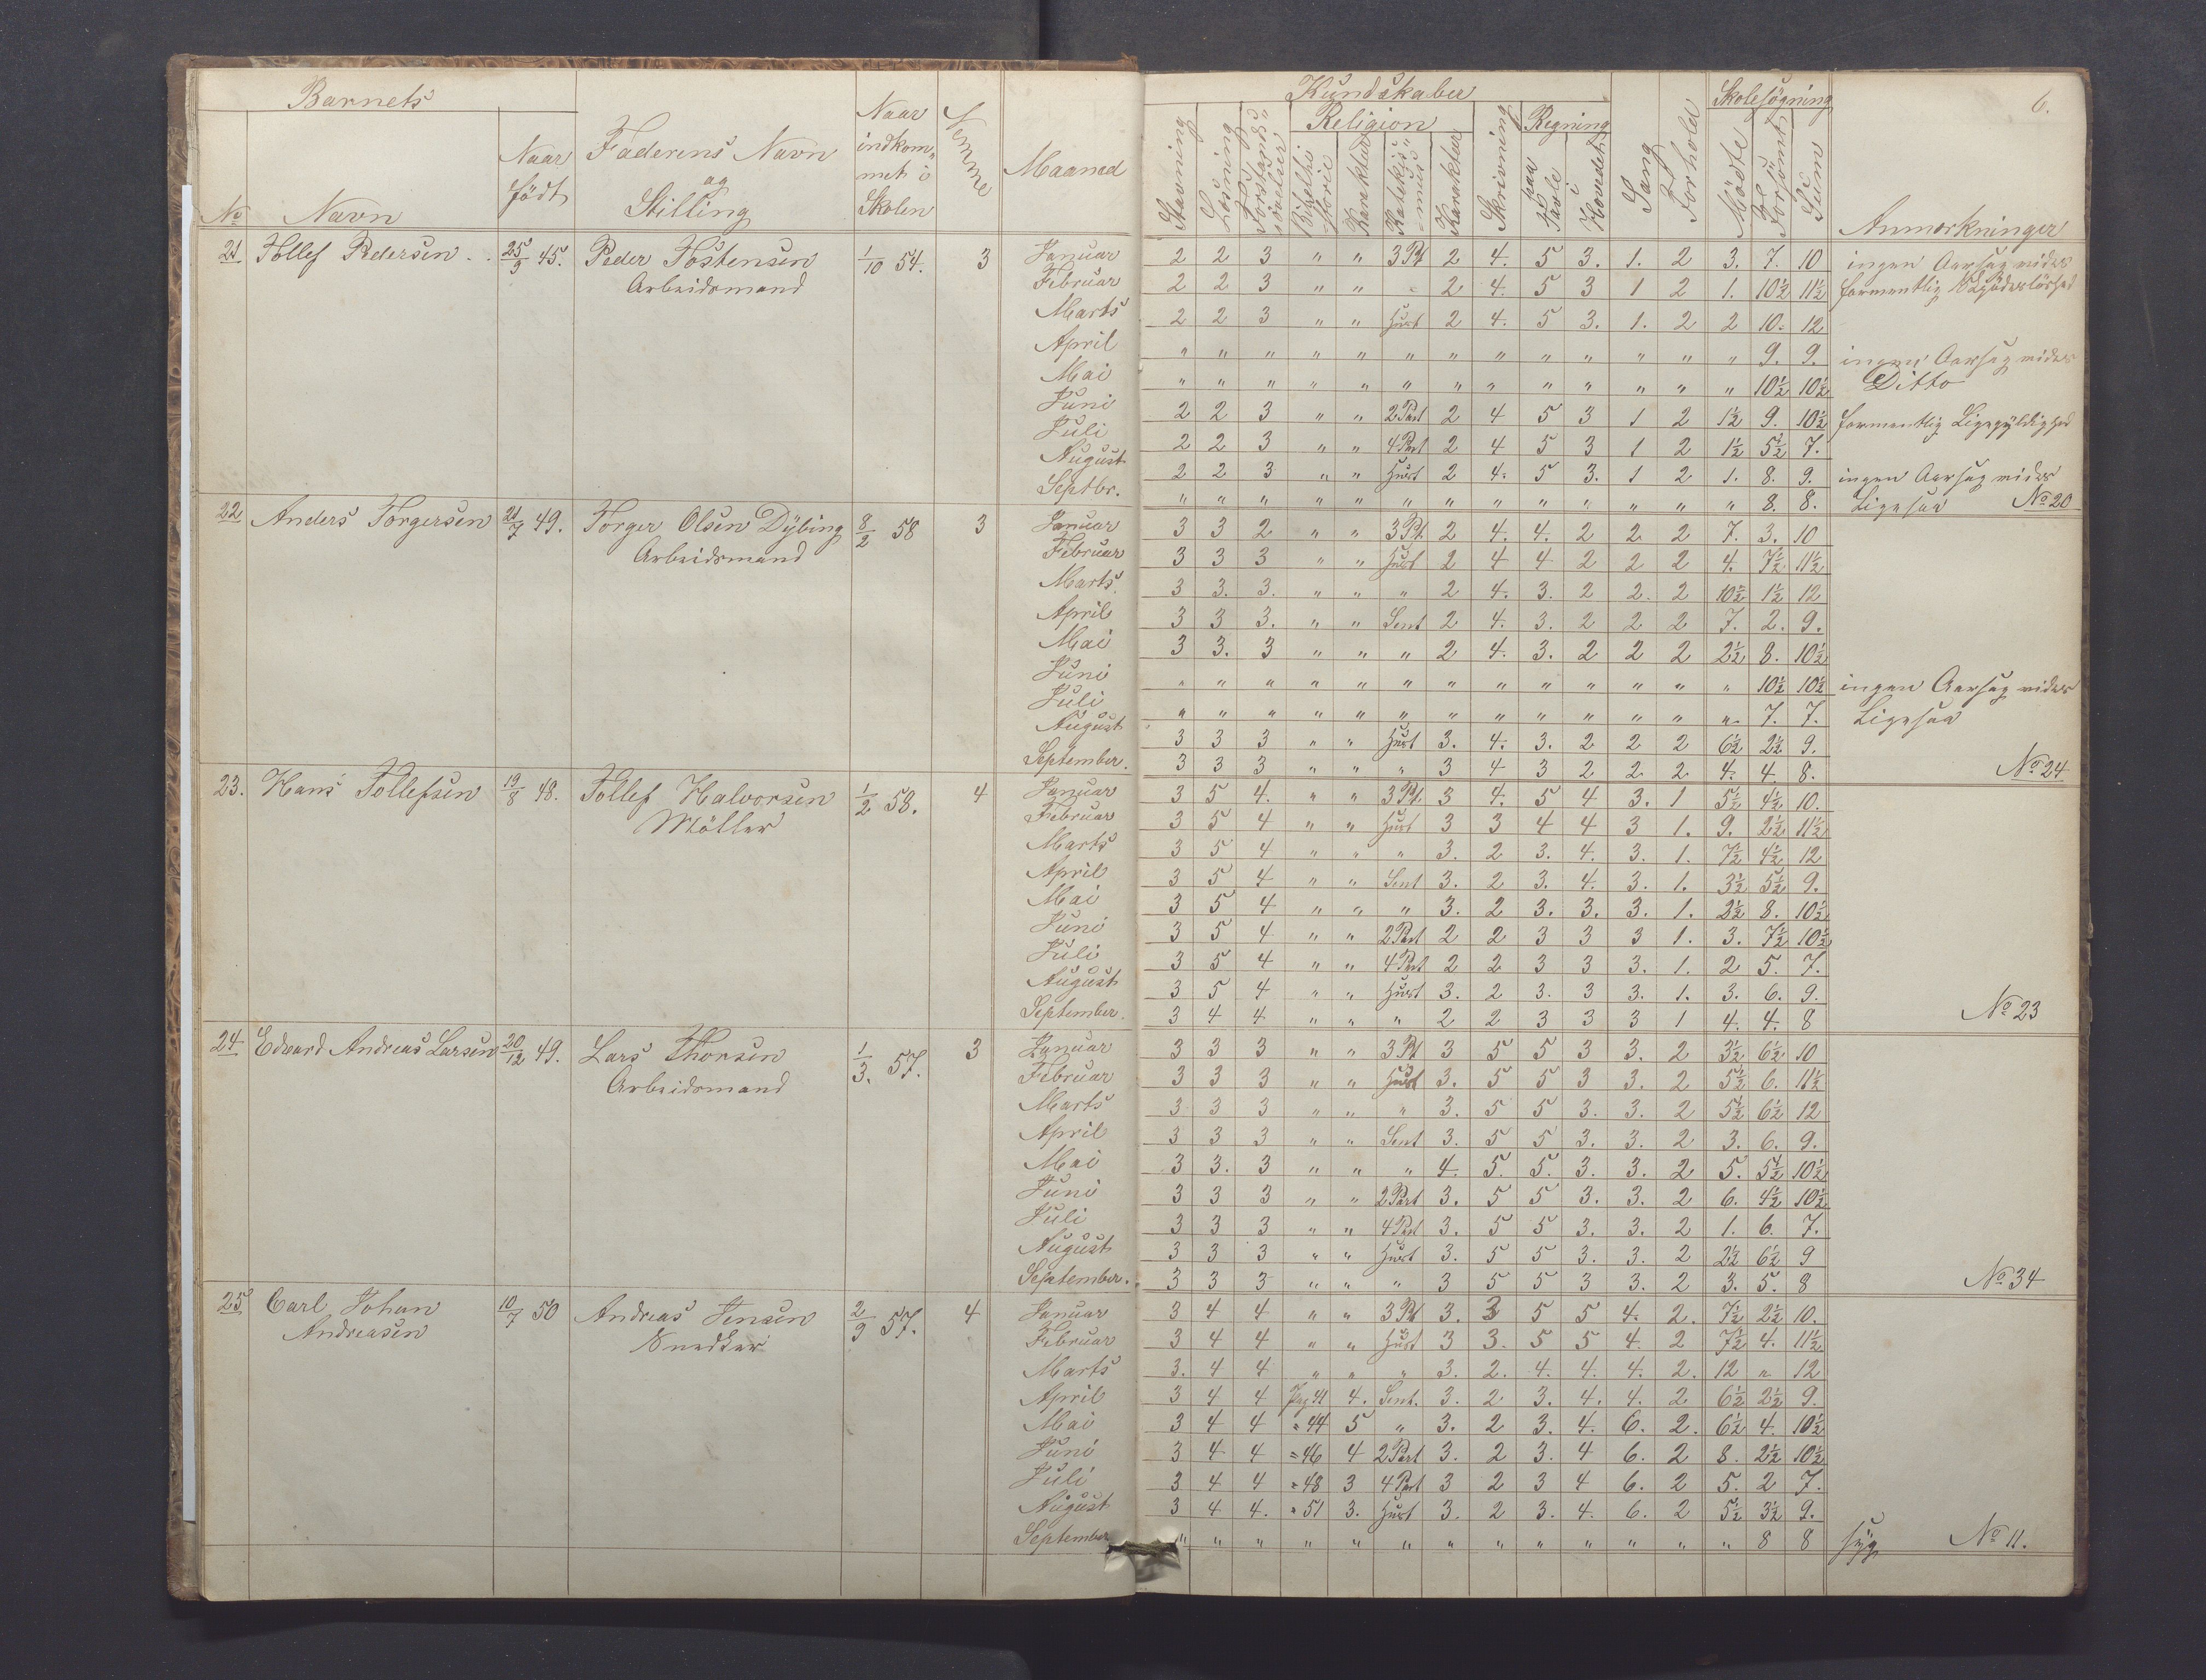 Barnets
No
Navn
Naar födt
Faderens Navn og Stilling
Naar indkommet i Skolen
Nemme
Maaned
Kundskaber
Skolesögning
6.
Stavning
Læsning
Forstandsøvelser
Religion
Bibelhistorie
Karakter
Katekismus
Karakter
Skrivning
Regning
paa Tavle
i Hovedet
Sang
Forhold
Mödte
Forsömt
Sum
Anmærkninger
21 Tollef Pedersen 25/9 45. Peder Tostensen 1/10 54. 3 Januar 2 2 3 " " 3 Pt 2 4. 5 3. 1. 2 3. 7. 10 ingen Aarsag vides
Arbeidsmand Februar 2 2 3 " " " 2 4. 5 3 1 2 1. 10½ 11½ formentlig
Marts 2 2 3 " " Hust 2 4. 5 3. 1. 2 2 10. 12
April " " " " " " " " " " " " " 9. 9. ingen Aarsag vides
Mai " " " " " " " " " " " " " 10½ 10½ Ditto
Juni 2 2 3 " " 2 Part 2 4 5 3 1 2 1½ 9. 10½ formentlig Ligegyldighed
Juli 2 2 3 " " 4 Part 2 4 5 3 1 2 1½ 5½ 7.
August 2 2 3 " " Hust 2 4. 5 3. 1 2 1. 8. 9. ingen Aarsag vides
Septbr. " " " " " " " " " " " " " 8. 8. Ligesaa No 20
22 Anders Torgersen 21/7 49. Torger Olsen Dÿbing 8/2 58 3 Januar 3 3 2 " " 3 Pt. 2 4. 4. 2 2 2 7. 3. 10
Arbeidsmand Februar 3 3 3 " " Hust 2 4 4 2 2 2 4. 7½ 11½
Marts. 3 3. 3. " " " 2 4. 3. 2 2. 2 10½ 1½ 12
April 3 3 3. " " Sent 2 4. 3. 2 2 2 7. 2. 9.
Mai 3 3. 3 " " " 2 4. 3. 2 2 2 2½ 8. 10½
Juni " " " " " " " " " " " " " 10½ 10½ ingen Aarsag vides
Juli " " " " " " " " " " " " " 7. 7. Ligesaa
August 3 3 3 " " Hust 3. 4. 3. 2 2 2 6½ 2½ 9.
September. 3 3 3 " " " 3 4 3 2 2 2 4. 4. 8. No 24
23. Hans Tollefsen 19/8 48. Tollef Halvorsen 1/2 58. 4 Januar 3 5 4. " " 3 Pt. 3 4. 5 4 3. 1 5½ 4½ 10.
Möller Februar 3 5 4 " " Hust 3 3 4 4 3 1. 9. 2½ 11½
Marts 3 5 4 " " " 3. 2 3. 4. 3. 1. 7½ 4½ 12
April 3 5 4 " " Sent 3. 2 3. 4. 3. 1. 3½ 5½ 9.
Mai 3 5 4 " " " 3. 2 3. 3. 3. 1. 2½ 8. 10½
Juni 3 5 4 " " 2 Part 2 2 3 3 3 1. 3. 7½ 10½
Juli 3 5 4 " " 4 Part 2 2 3 3 3. 1. 2 5. 7.
August 3 5 4 " " Hust 3. 2 3. 3 3. 1. 3. 6. 9.
September. 3 4 4 " " " 2 2 3 3 3 1 4. 4. 8 No 23
24 Edvard Andreas Larsen 20/12 49. Lars Thorsen 1/3. 57. 3 Januar 3 3 3 " " 3 Pt 3 5 5 3 3. 2 3½ 6½ 10
Arbeidsmand Februar 3 3 3 " " Hust 3. 5 5 3 3. 2 5½ 6. 11½
Marts 3 3 3 " " " 3. 5 5 3. 3. 2 5½ 6½ 12
April 3 3 3 " " Sent 3. 5 5 3. 3. 2 3. 6. 9.
Mai 3 3. 3 " " " 4. 5. 5. 3. 3. 2 5. 5½ 10½
Juni 3 3 3 " " 2 Part 3. 5 5 3. 3. 2 6. 4½ 10½
Juli 3 3 3 " " 4 Part 3. 5 5 3. 3. 2 1. 6. 7.
August 3 3 3 " " Hust 3. 5 5 3. 3. 2 2½ 6½ 9
September. 3 3 3 " " " 3 5 5 3 3. 2 3. 5. 8 No 34
25 Carl Johan 10/7 50 Andreas Jensen 2/9 57. 4 Januar 3 4 4 " " 3 Pt 3. 3 5 5 4. 2. 7½ 2½ 10.
Andreasen Snedker Februar 3 4 4 " " Hust 3 3. 5 5 4. 2 7½ 4. 11½
Marts 3. 4 4 " " " 3. 2. 4. 4. 4. 2. 12 " 12
April 3 4 4 Pag 41 4. Sent. 3. 2 3. 4. 4. 2 6½ 2½ 9.
Mai 3 4 4 " 44 5 " 3. 2 3. 4. 6. 2. 6½ 4. 10½
Juni 3 4 4 " 46 4 2 Part 3. 2 3. 4 6. 2 8. 2½ 10½
Juli 3 4 4 " 48 3 4 Part 3 2 3 4 6. 2 5. 2 7.
August 3 4 4. " 51 3. Hust 3. 2 3. 4. 6. 2 5½ 3½ 9.
September " " " " " " " " " " " " " 8 8 sÿg No 11.